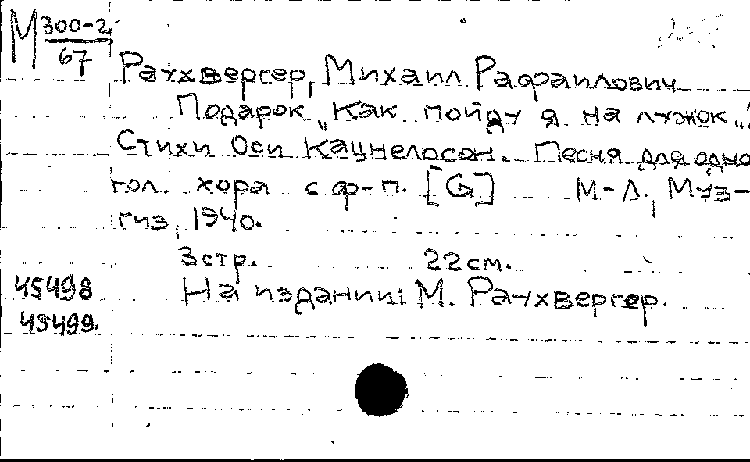 М 300-2
67
Раухвергер, Михаил Рафаилович
Подарок „Как пойду я на лужок..."
Стихи Оси Кацнелосон. Песня для одно
гол. хора с ф-п. [G] М-Л., Муз-
гиз, 1940.
3 стр. 22 см.
45498 На издании: М. Раухвергер.
45499.